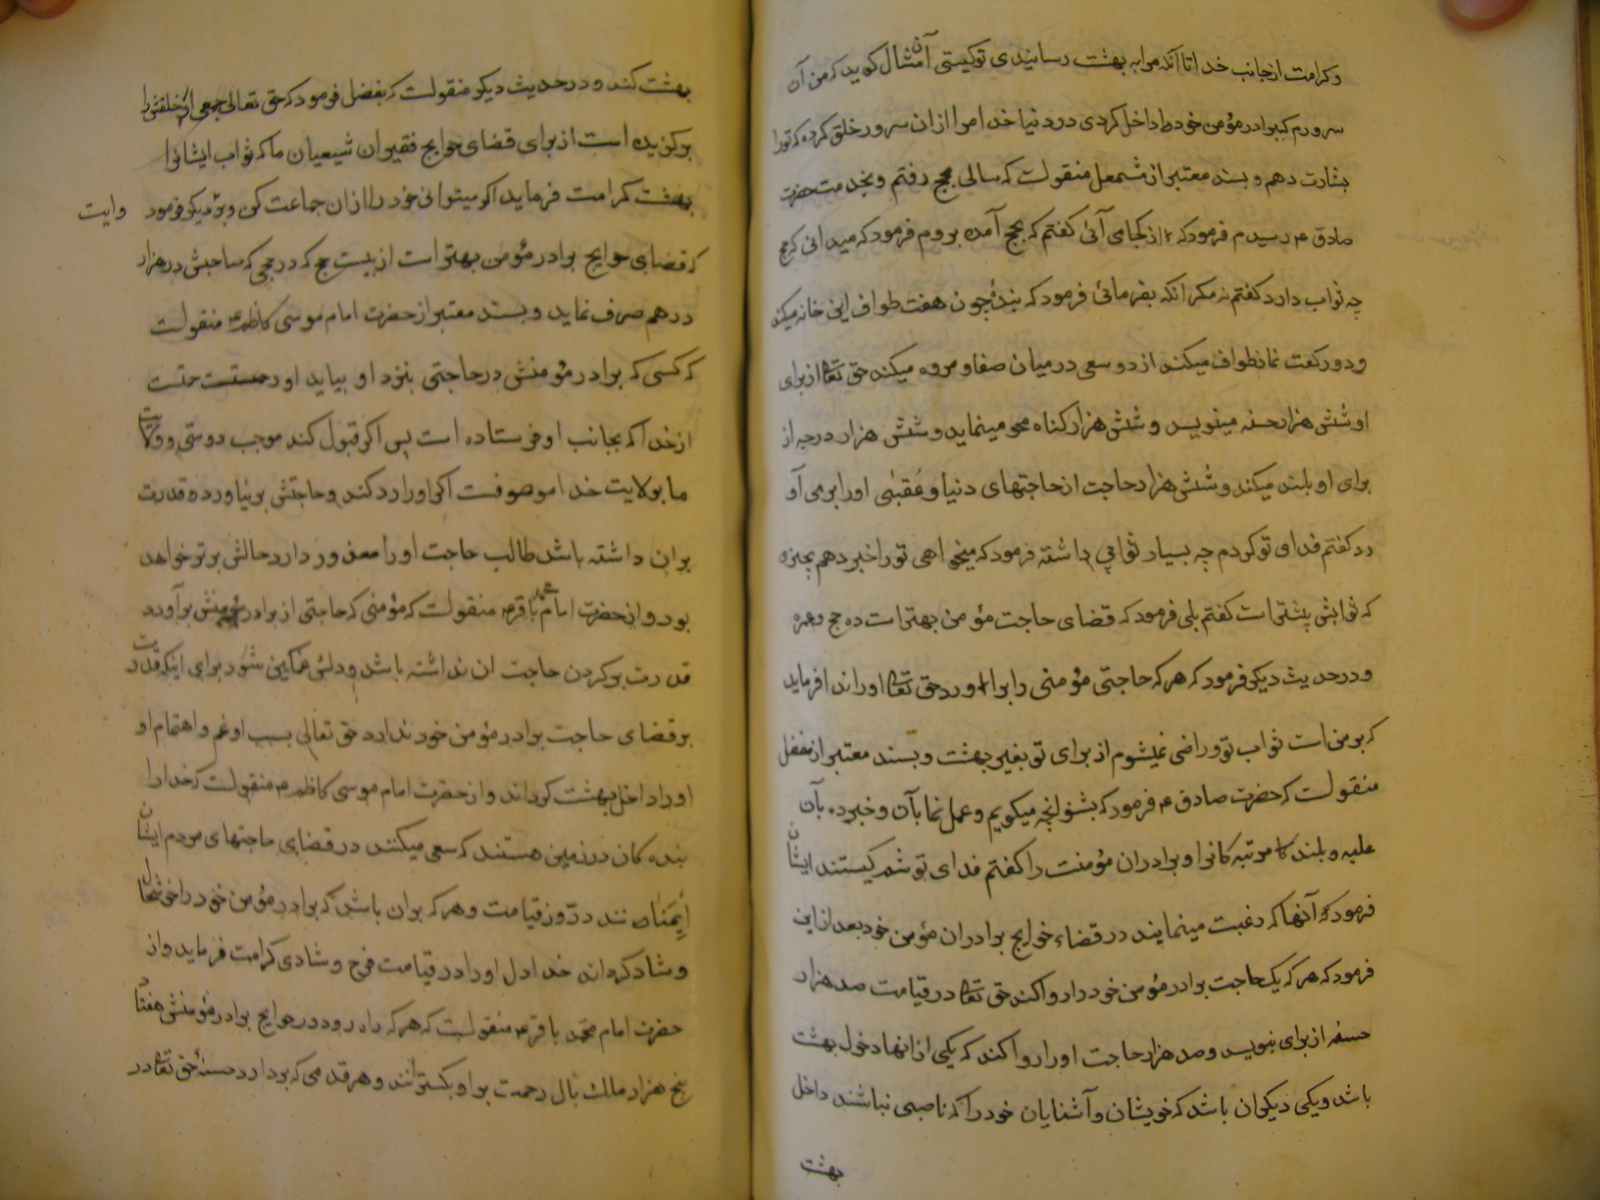 وکرامت ازجانب خدا تا آنکه مرا به بهشت رسانیدی توکیستی آن مثال کوید که من آن
سرورم که برادر مؤمن خود داخل کردی در دنیا خدا مرا ازان سرور خلق کرده که تورا
بشارت دهم و بسند معتبر از مشمعل منقولست که سالی بحج رفتم و بخدمت حضرت
صادق ع رسیدم فرمود که از کجا می آئی کفتم که بحج آمده بودم فرمود که میدانی که حج
چه ثواب دارد کفتم نه مکر انکه بفرمائی فرمود که بندۀ چون هفت طواف این خانه میکند
ودورکعت نماز طواف میکند از دو سعی درمیان صفا و مروه میکند حق تعالی از برای
او شش هزار حسنه مینویسد و شش هزار کناه محو مینماید و شش هزار درجه از
برای او بلند میکند و شش هزار حاجت از حاجتهای دنیا و عقبی او را برمی آو
رد کفتم فدای تو کردم چه بسیار ثوابی داشته فرمود که میخواهی تورا خبر دهم بچیزه
که ثوابش بیشتر است کفتم بلی فرمود که قضای حاجت مؤمن بهتر است ده حج وعمره
ودر حدیث دیکر فرمود که هرکه حاجتی مؤمنی را براورد حق تعالی اورا ندا فرماید
که بر من است ثواب تو و راضی نمیشوم از برای تو بغیر بهشت و بسند معتبر از مفضل
منقولست که حضرت صادق ع فرمود که بشنو انچه میکویم و عمل نما بآن و خبر ده بآن
علیه و بلند مرتبه کانرا و برادران مؤمنت را کفتم فدای تو شوم کیستند ایشان
فرمود که آنها که رغبت مینمایند در قضاء حوایج برادران مؤمن خود بعد از این
فرمود که هرکه یک حاجت برادر مؤمن خود را روا کند حق تعالی در قیامت صد هزار
حسنه از برای بنویسد و صد هزار حاجت او را روا کند که یکی از انها دخول بهشت
باشد و یکی دیکر ان باشد که خویشان و آشنایان خود را که ناصبی نباشند داخل
بهشت
بهشت کند و در حدیث دیکر منقولست که بمفضل فرمود که حق تعالی جمعی از خلقش را
برکزیده است از برای قضای حوایج فقیران شیعیان ما که ثواب ایشانرا
بهشت کرامت فرماید اکر میتوانی خود را ازان جماعت کن و بروایت دیکر فرمود
که قضای حوایج برادر مؤمن بهتر است از بیست حج که در حجی که صاحبش در هزار
درهم صرف نماید و بسند معتبر از حضرت امام موسی کاظم ع منقولست
که کسی که برادر مؤمنش در حاجتی بنزد او بیاید او رحمتست
از خدا که بجانب او فرستاده است پس اکر قبول کند موجب دوستی وولایت
ما بولایت خدا موصوفست اکر او را رد کند و حاجتش برنیاورده قدرت
بران داشته باشد طالب حاجت او را معذور دارد حالش برتر خواهد
بود و از حضرت امام محمد باقر ع منقولست که مؤمنی که حاجتی از برادر مؤمنش برآورد
قدرت بر کردن حاجت ان نداشته باشد و دلش غمکین شود برای اینکه قدرت
بر قضای حاجت برادر مؤمن خود ندارد حق تعالی بسبب او غم و اهتمام او
او را داخل بهشت کرداند و از حضرت امام موسی کاظم ع منقولست که خدا را
بنده کان در زمین هستند که سعی میکنند در قضای حاجتهای مردم ایشان
ایمنانند در روز قیامت و هرکه بران باشد که برادر مؤمن خود را خوشحال
و شاد کرداند خدا دل او را در قیامت فرح و شادی کرامت فرماید و از
حضرت امام محمد باقر ع منقولست که هرکه راه رود در حوایج برادر مؤمنش هفتاد
پنج هزار ملک بال رحمت بر او بکسترانند و هر قدمی که بردارد حسنۀ حق تعالی در